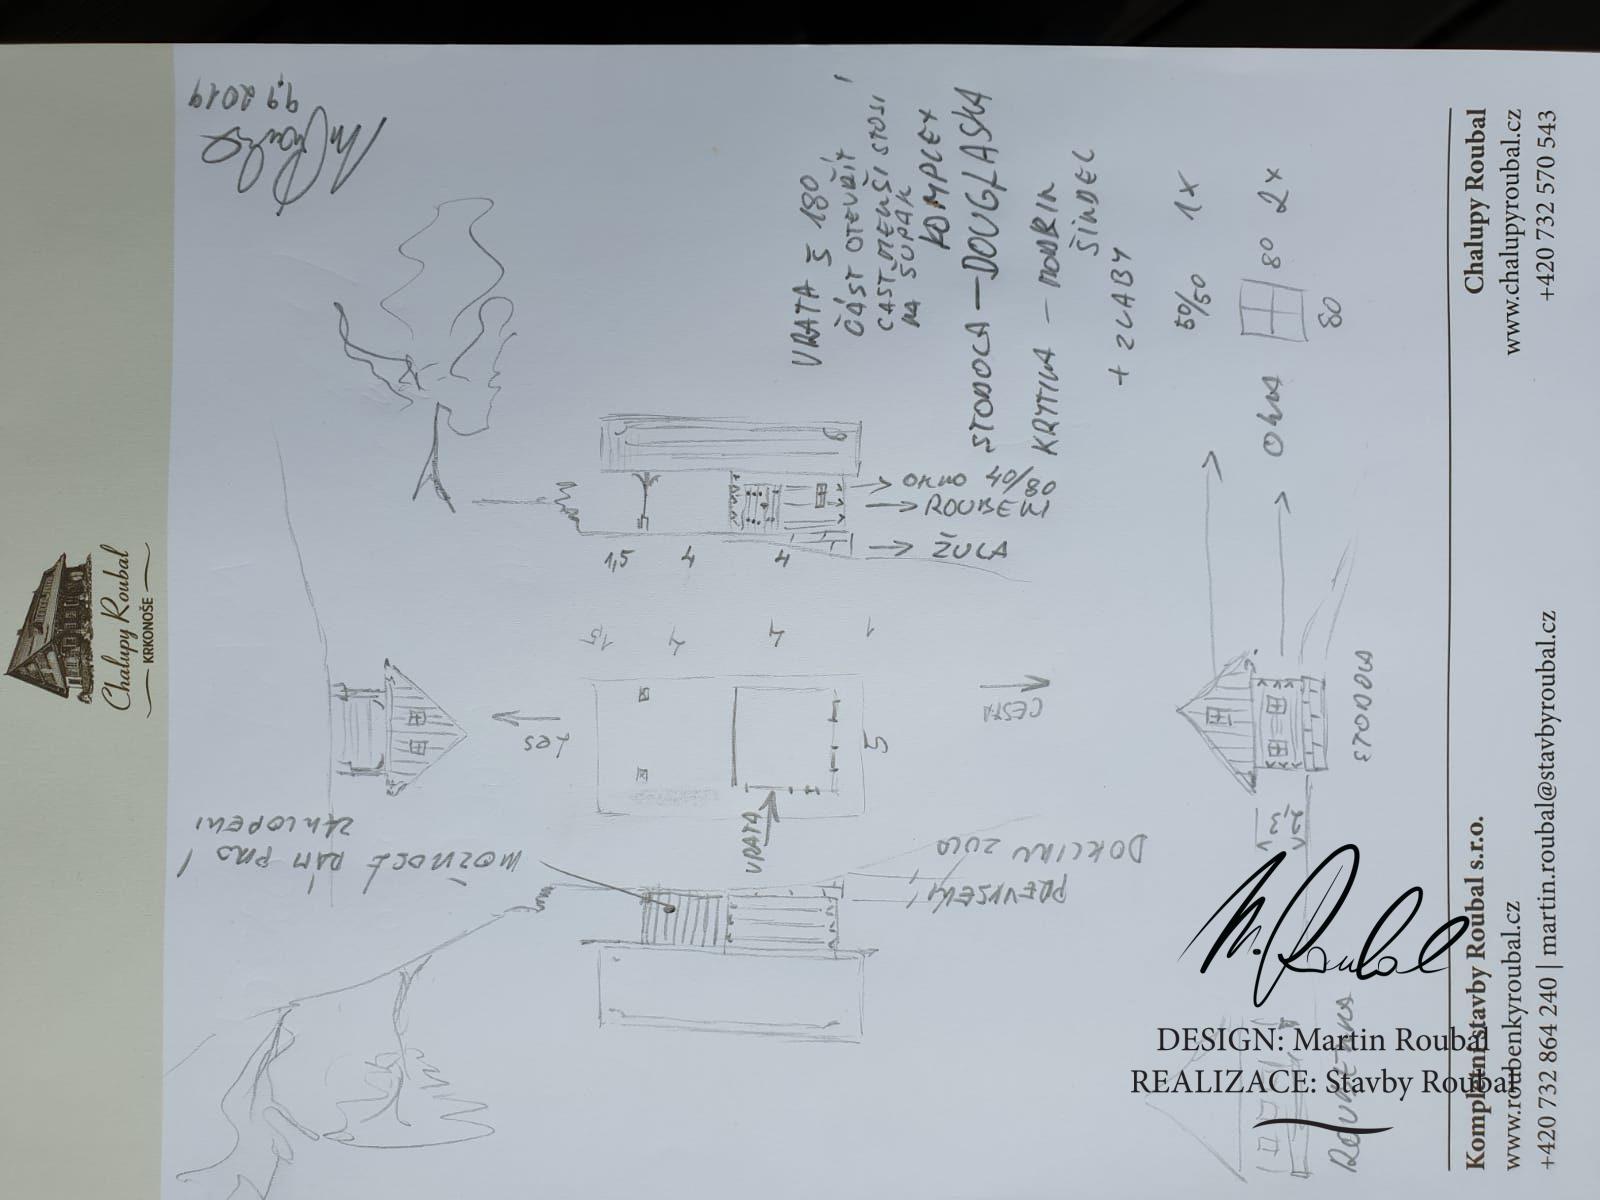 Chalupy Roubal
KRKONOŠE
9.9 2019
VRATA Š 180
ČÁST OTEVŘÍT
ČÁST MENŠÍ STOJÍ
NA ŠUPÁK
KOMPLEX
STODOLA — DOUGLASKA
KRYTINA — MODŘÍN
ŠINDEL
+ ŽLABY
50/50 1X
OKNA 80 2X
80
OKNO 40/80
ROUBENÍ
ŽULA
1,5 4 4
1,5 4 4 1
5
LES
CESTA
VRATA
MOŽNOST DÁM PRO
ZAKLOPENÍ
PŘEVÝŠENÍ
2,3
STODOLA
ROUBENKA
Chalupy Roubal
www.chalupyroubal.cz
+420 732 570 543
Kompletní stavby Roubal s.r.o.
www.roubenkyroubal.cz
+420 732 864 240 | martin.roubal@stavbyroubal.cz
M. Roubal
DESIGN: Martin Roubal
REALIZACE: Stavby Roubal